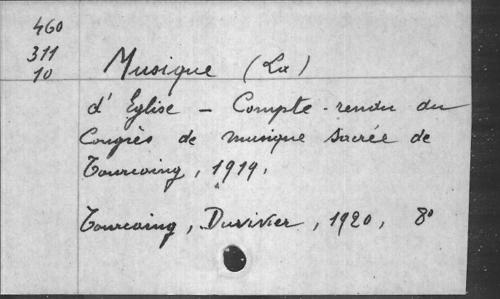 460
311
10
Musique (La)
d'Eglise - Compte-rendu du
Congrès de musique sacrée de
Tourcoing, 1919.
Tourcoing, Duvivier, 1920, 8°